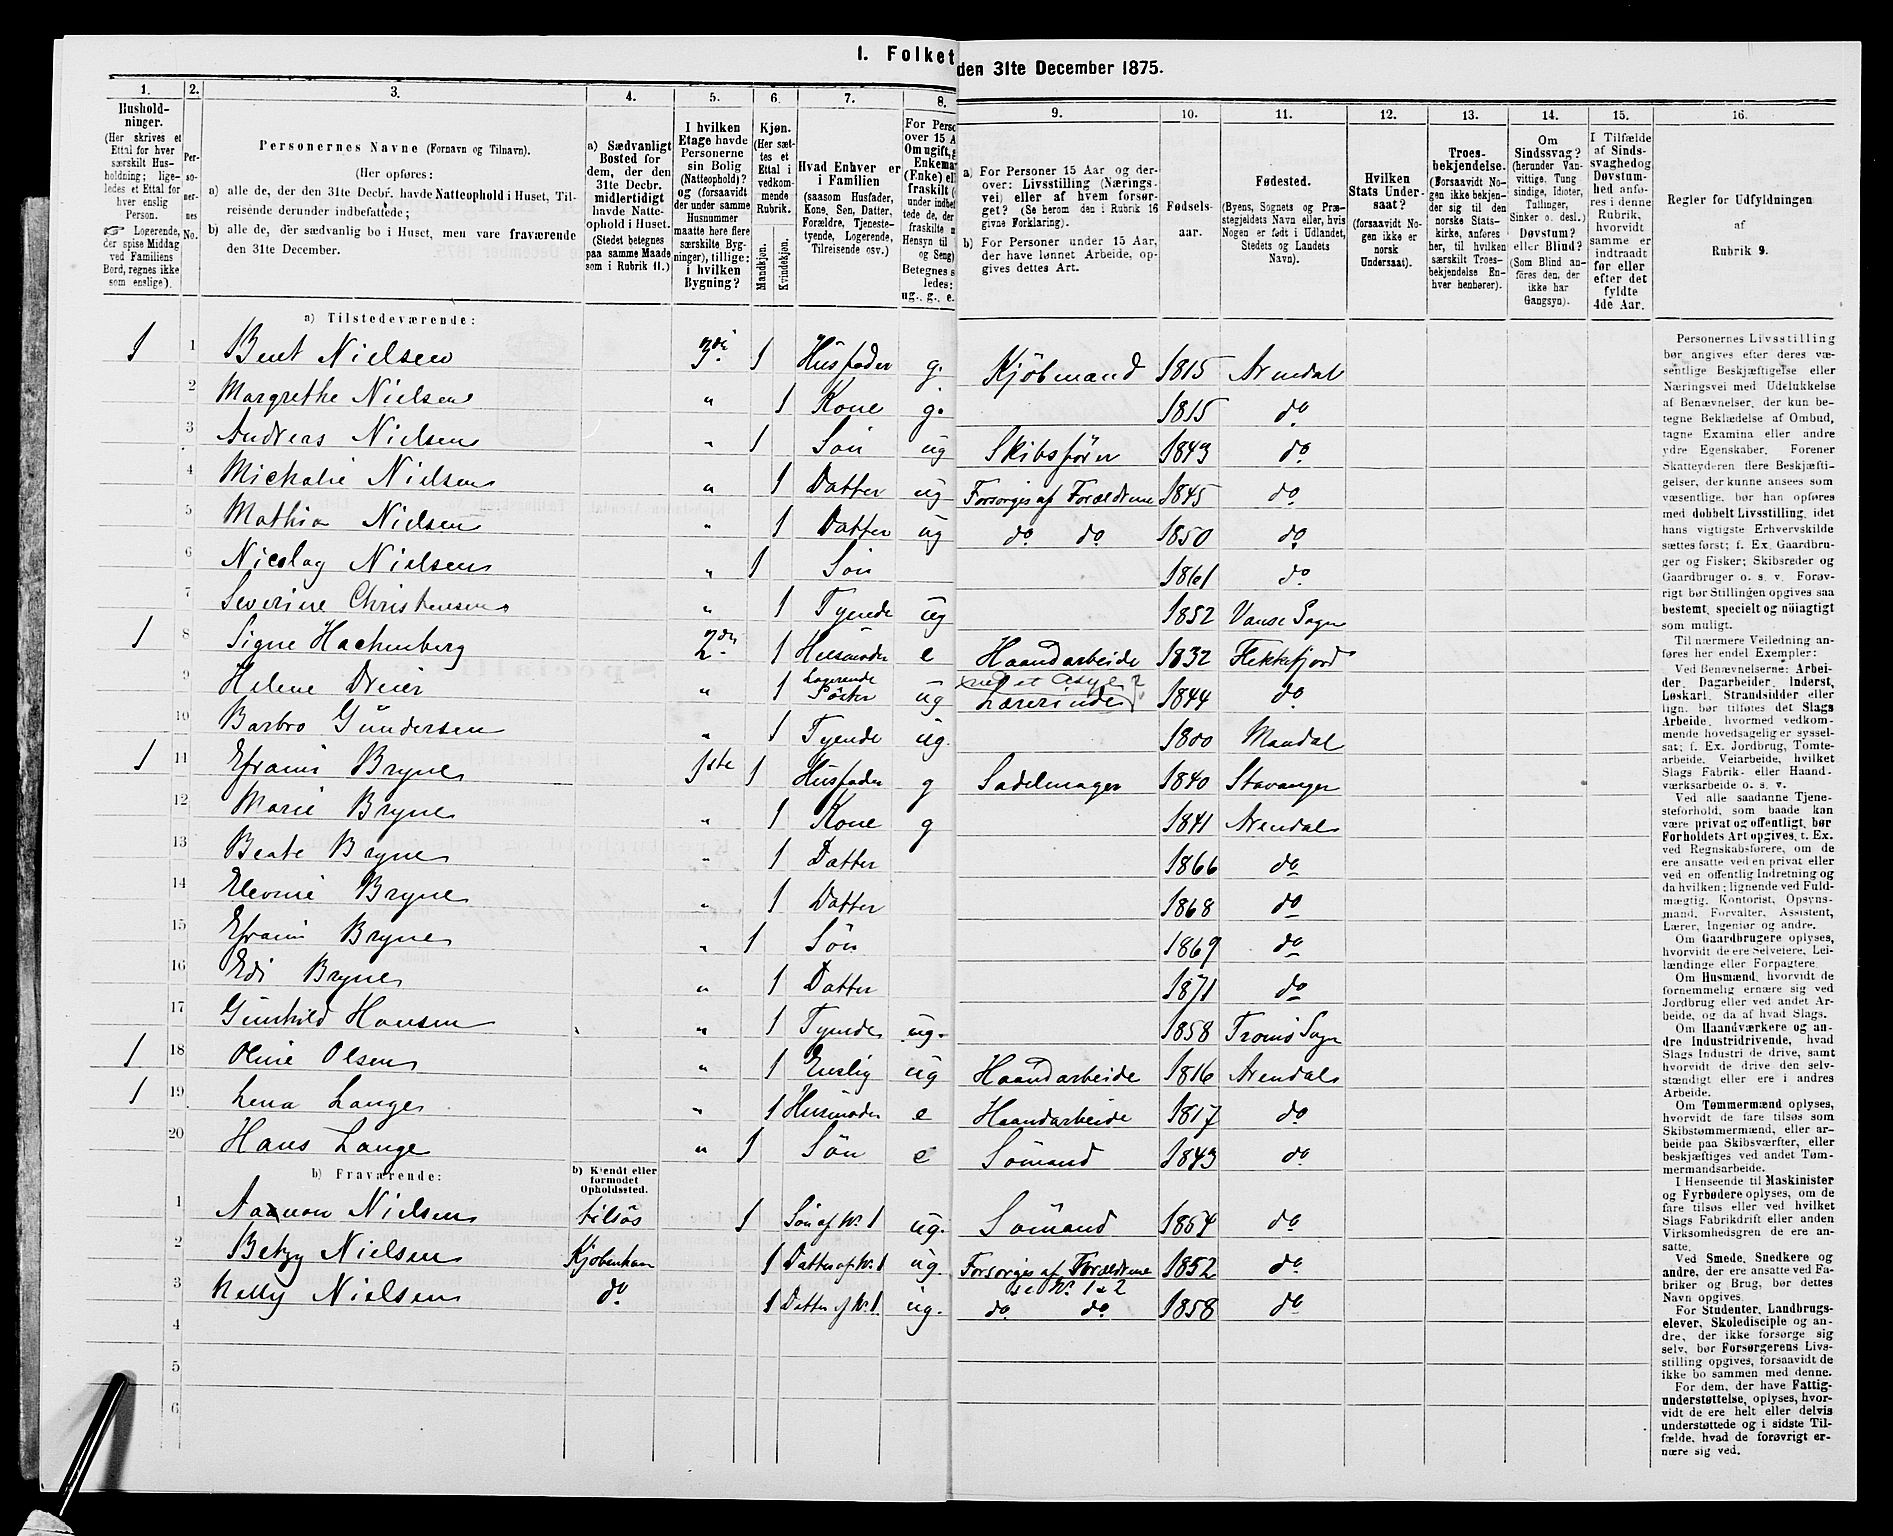 1. Folket den 31te December 1875.
1. 2. 3. 4. 5. 6. 7. 8. 9. 10. 11. 12. 13. 14. 15. 16.
Husholdninger.
(Her skrives et
Ettal for hver
særskilt Hus-
holdning; lige-
ledes et Ettal for
hver enslig
Person.
☞ Logerende,
der spise Middag
ved Familiens
Bord, regnes ikke
som enslige).
Per-
so-
ner-
nes
No.
Personernes Navne (Fornavn og Tilnavn).
(Her opføres:
a) alle de, der den 31te Decbr. havde Natteophold i Huset, Til-
reisende derunder indbefattede;
b) alle de, der sædvanlig bo i Huset, men vare fraværende
den 31te December.
a) Sædvanligt
Bosted for
dem, der den
31te Decbr.
midlertidigt
havde Natte-
ophold i Huset.
(Stedet betegnes
paa samme Maade
som i Rubrik 11.)
I hvilken
Etage havde
Personerne
sin Bolig
(Natteophold)?
og (forsaavidt
der under samme
Husnummer
maatte høre flere
særskilte Byg-
ninger), tillige:
i hvilken
Bygning?
Kjøn.
(Her sæt-
tes et
Ettal i
vedkom-
mende
Rubrik.
Mandkjøn.
Kvindekjøn.
Hvad Enhver er
i Familien
(saasom Husfader,
Kone, Søn, Datter,
Forældre, Tjeneste-
tyende, Logerende,
Tilreisende osv.)
For Perso
over 15 A
Om ugift, g
Enkema
(Enke) el
fraskilt (
under indbef
tede de, der
fraskilte m
Hensyn til
og Seng)
Betegnes s
ledes:
ug., g., e.
a) For Personer 15 Aar og der-
over: Livsstilling (Nærings-
vei) eller af hvem forsør-
get? (Se herom den i Rubrik 16
givne Forklaring).
b) For Personer under 15 Aar,
der have lønnet Arbeide, op-
gives dettes Art.
Fødsels-
aar.
Fødested.
(Byens, Sognets og Præ-
stegjeldets Navn eller, hvis
Nogen er født i Udlandet,
Stedets og Landets
Navn).
Hvilken
Stats Under-
saat?
(forsaavidt No-
gen ikke er
norsk
Undersaat).
Troes-
bekjendelse.
(Forsaavidt No-
gen ikke bekjen-
der sig til den
norske Stats-
kirke, anføres
her, til hvilken
særskilt Troes-
bekjendelse En-
hver henhører).
Om
Sindssvag?
(herunder Van-
vittige, Tung
sindige, Idioter,
Tullinger,
Sinker o. desl.)
Døvstum?
eller Blind?
(Som Blind an-
føres den, der
ikke har
Gangsyn).
I Tilfælde
af Sinds-
svaghed og
Døvstum-
hed anfø-
res i denne
Rubrik,
hvorvidt
samme er
indtraadt
før eller
efter det
fyldte
4de Aar.
Regler for Udfyldningen
af
Rubrik 9.
a) Tilstedeværende:
1 1 Bent Nielsen 3die 1 Husfader g. Kjøbmand 1815 Arendal
2 Margrethe Nielsen " 1 Kone g. 1815 do
3 Andreas Nielsen " 1 Søn ug Skibsfører 1843 do
4 Michalie Nielsen " 1 Datter ug Forsørges af Forældrene 1845 do
5 Mathia Nielsen " 1 Datter ug do do 1850 do
6 Nicolay Nielsen " 1 Søn 1861 do
7 Severine Christensen " 1 Tyende ug 1852 Vanse Sogn
1 8 Signe Hachenberg 2den 1 Husmoder e Haandarbeide 1832 Flekkefjord
9 Helene Dreier " 1 Logerende Søster ug ved et Asyl? Lærerinde 1844 do
10 Barbro Gundersen " 1 Tyende ug. 1800 Mandal
1 11 Efraim Bryne 1ste 1 Husfader g Sadelmager 1840 Stavanger
12 Marie Bryne " 1 Kone g 1841 Arendal
13 Beate Bryne " 1 Datter 1866 do
14 Eleonie Bryne " 1 Datter 1868 do
15 Efraim Bryne " 1 Søn 1869 do
16 Edi Bryne " 1 Datter 1871 do
17 Gunhild Hansen " 1 Tyende ug. 1858 Tromø Sogn
1 18 Oline Olsen " 1 Enslig ug Haandarbeide 1816 Arendal
1 19 Lena Lange " 1 Husmoder e Haandarbeide 1817 do
20 Hans Lange " 1 Søn e Sømand 1843 do
b) Fraværende: b) Kjendt eller
formodet
Opholdssted.
1 Aanon Nielsen tilsøs 1 Søn af No 1 ug. Sømand 1854 do
2 Betzy Nielsen Kjøbenhavn 1 Datter af No 1 ug. Forsørges af Forældrene 1852 do
se No 1 & 2
3 Nelly Nielsen do 1 Datter af No 1. ug. do do 1858 do
4
5
6
Personernes Livsstilling
bør angives efter deres væ-
sentlige Beskjæftigelse eller
Næringsvei med Udelukkelse
af Benævnelser, der kun be-
tegne Beklædelse af Ombud,
tagne Examina eller andre
ydre Egenskaber. Forener
Skatteyderen flere Beskjæfti-
gelser, der kunne ansees som
væsentlige, bør han opføres
med dobbelt Livsstilling, idet
hans vigtigste Erhvervskilde
sættes først; f. Ex. Gaardbru-
ger og Fisker; Skibsreder og
Gaardbruger o. s. v. Forøv-
rigt bør Stillingen opgives saa
bestemt, specielt og nöiagtigt
som muligt.
Til nærmere Veiledning an-
føres her endel Exempler:
Ved Benævnelserne: Arbei-
der, Dagarbeider, Inderst,
Løskarl, Strandsidder eller
lign. bør tilføies det Slags
Arbeide, hvormed vedkom-
mende hovedsagelig er syssel-
sat; f. Ex. Jordbrug, Tomte-
arbeide, Veiarbeide, hvilket
Slags Fabrik- eller Haand-
værksarbeide o. s. v.
Ved alle saadanne Tjene-
steforhold, som baade kan
være privat og offentligt, bør
Forholdets Art opgives, t. Ex.
ved Regnskabsførere, om de
ere ansatte ved en privat eller
ved en offentlig Indretning og
da hvilken; lignende ved Fuld-
mægtig, Kontorist, Opsyns-
mand, Forvalter, Assistent,
Lærer, Ingeniør og andre.
Om Gaardbrugere oplyses,
hvorvidt de ere Selveiere, Lei-
lændinge eller Forpagtere.
Om Husmænd, hvorvidt de
fornemmelig ernære sig ved
Jordbrug eller ved andet Ar-
beide, og da af hvad Slags.
Om Haandværkere og an-
dre Industridrivende, hvad
Slags Industri de drive, samt
hvorvidt de drive den selv-
stændigt eller ere i andres
Arbeide.
Om Tømmermænd oplyses,
hvorvidt de fare tilsøs som
Skibstømmermænd, eller ar-
beide paa Skibsværfter, eller
beskjæftiges ved andet Tøm-
mermandsarbeide.
I Henseende til Maskinister
og Fyrbødere oplyses, om de
fare tilsøs eller ved hvilket
Slags Fabrikdrift eller anden
Virksomhedsgren de ere an-
satte.
Ved Smede, Snedkere og
andre, der ere ansatte ved Fa-
briker og Brug, bør dettes
Navn opgives.
For Studenter, Landbrugs-
elever, Skoledisciple og an-
dre, der ikke forsørge sig
selv, bør Forsørgerens Livs-
stilling opgives, forsaavidt de
ikke bo sammen med denne.
For dem, der have Fattig-
understøttelse, oplyses, hvor-
vidt de ere helt eller delvis
understøttede og i sidste Til-
fælde, hvad de forøvrigt er-
nære sig ved.